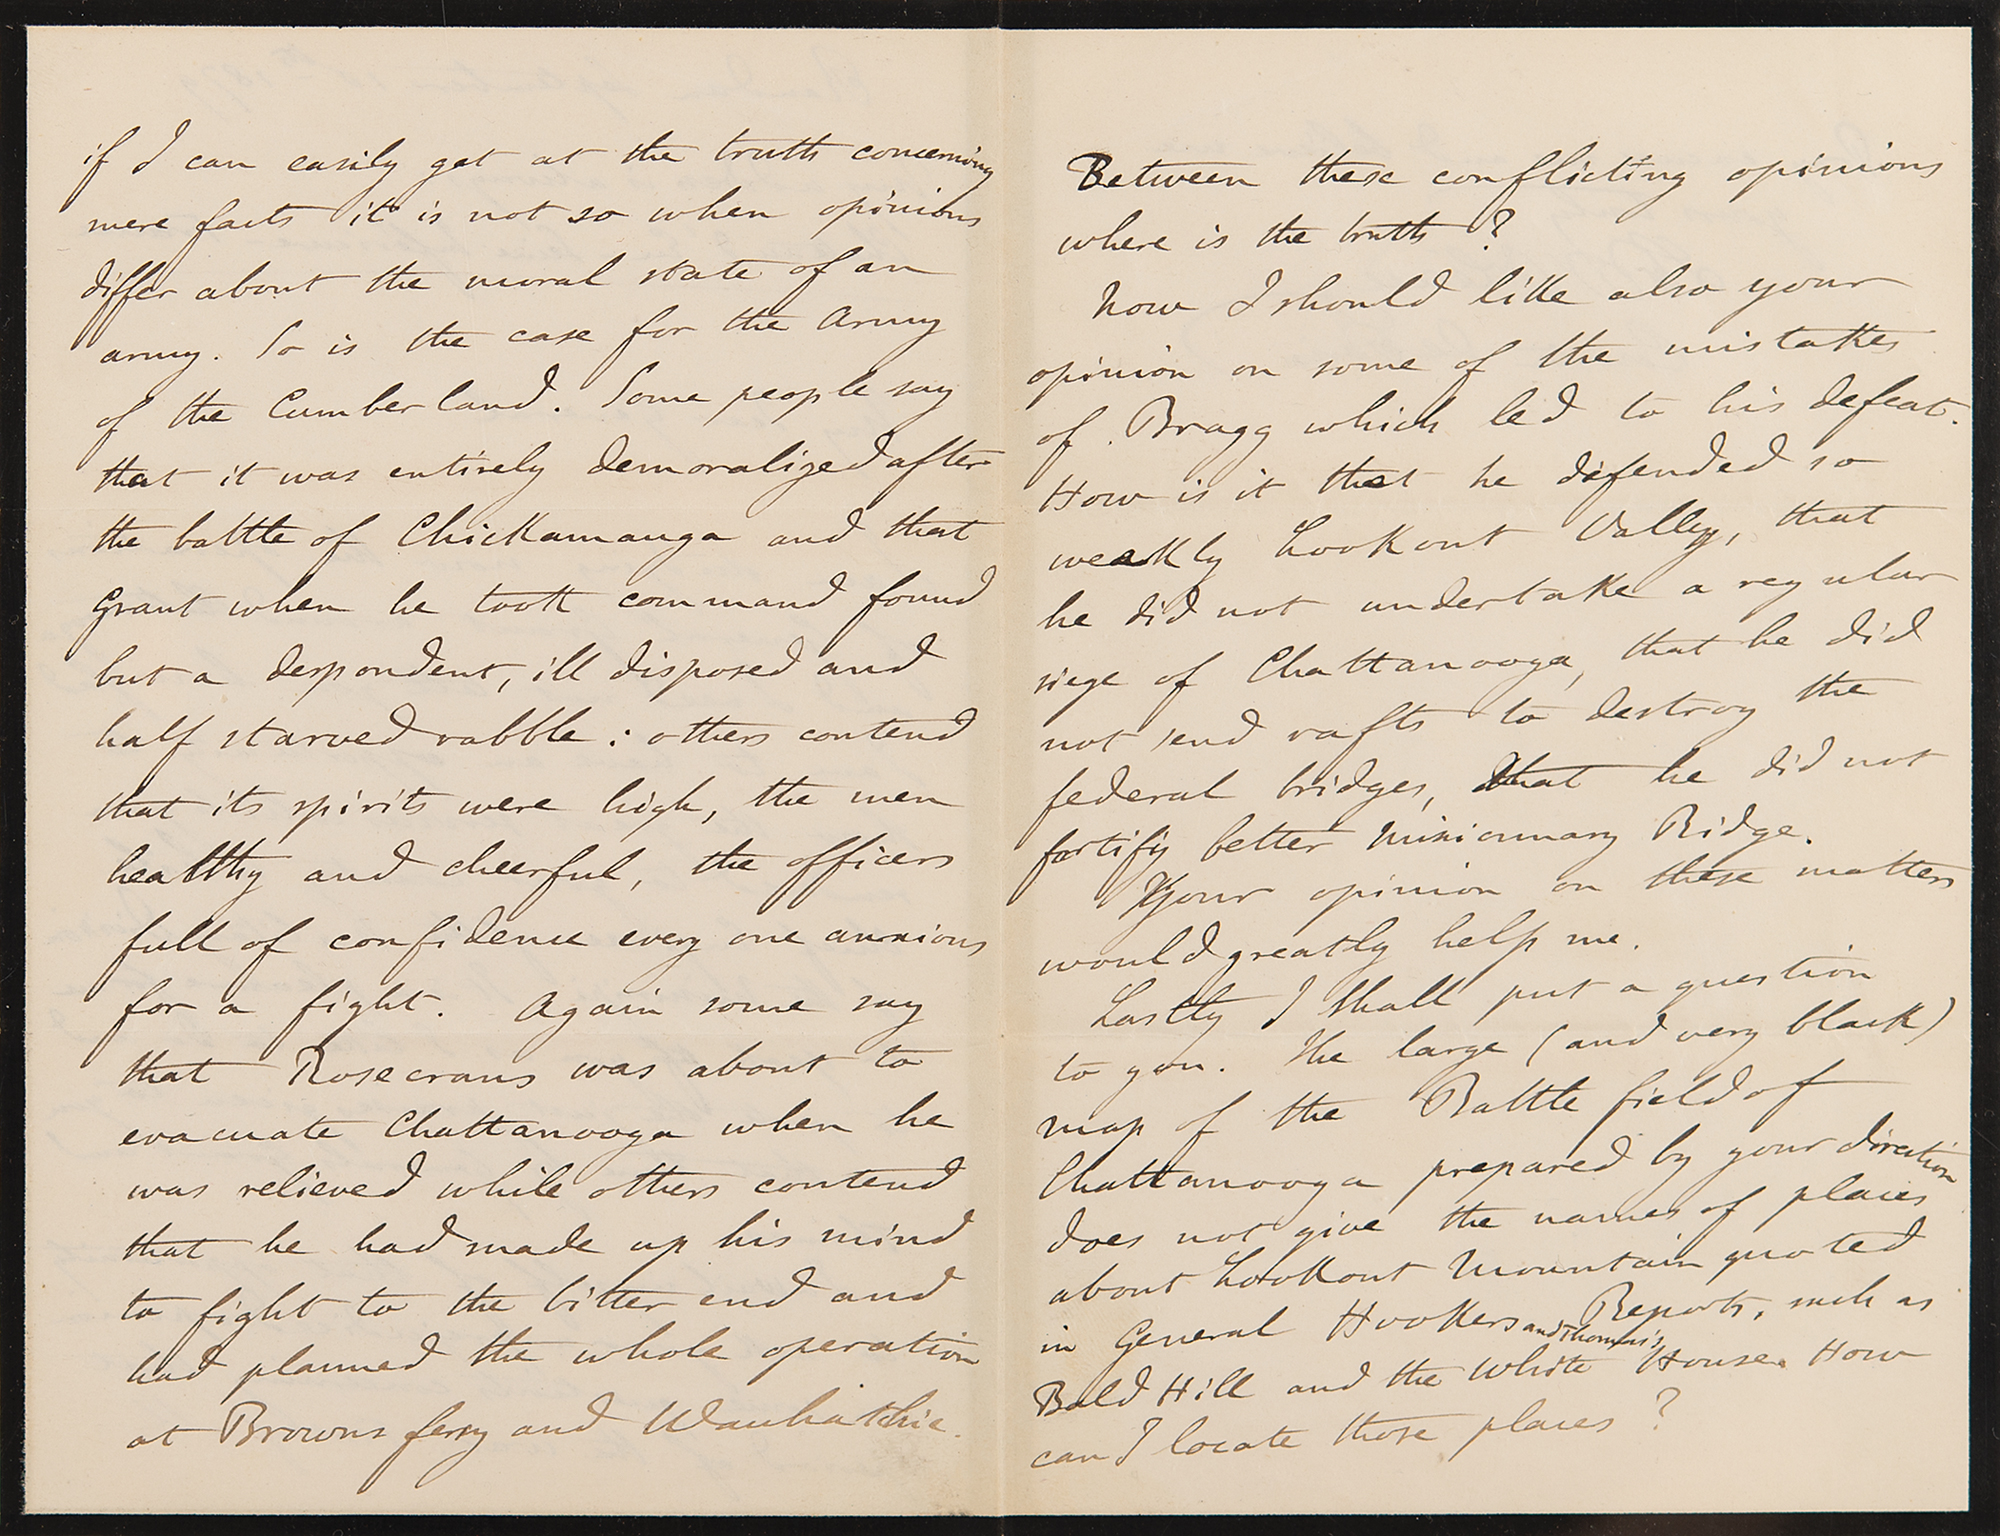 if I can easily get at the truth concerning
mere facts it is not so when opinions
differ about the moral state of an
army. So is the case for the Army
of the Cumberland. Some people say
that it was entirely demoralized after
the battle of Chickamauga and that
Grant when he took command found
but a despondent, ill disposed and
half starved rabble: others contend
that its spirits were high, the men
healthy and cheerful, the officers
full of confidence every one anxious
for a fight. Again some say
that Rosecrans was about to
evacuate Chattanooga when he
was relieved while others contend
that he had made up his mind
to fight to the bitter end and
had planned the whole operation
at Browns ferry and Wauhatchie.
Between these conflicting opinions
where is the truth?
Now I should like also your
opinion on some of the mistakes
of Bragg which led to his defeat.
How is it that he defended so
weakly Lookout Valley, that
he did not undertake a regular
siege of Chattanooga, that he did
not send rafts to destroy the
federal bridges, that he did not
fortify better Missionnary Ridge.
Your opinion on these matters
would greatly help me.
Lastly I shall put a question
to you. The large (and very black)
map of the Battle field of
Chattanooga prepared by your direction
does not give the names of places
about Lookout Mountain quoted
in General Hookers and Thomas's Reports, such as
Bald Hill and the White House. How
can I locate those places?